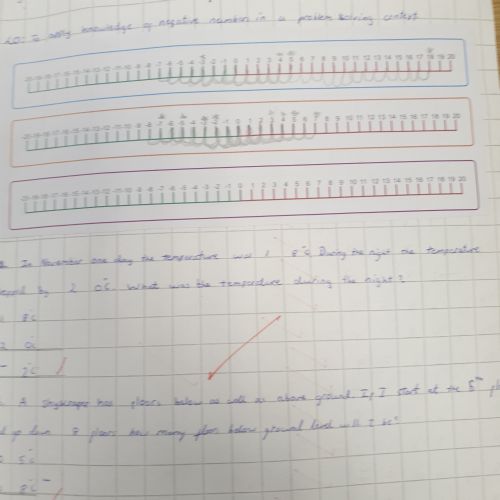 LO: To apply knowledge of negative numbers in a problem solving context
-20 -19 -18 -17 -16 -15 -14 -13 -12 -11 -10 -9 -8 -7 -6 -5 -4 -3 -2 -1 0 1 2 3 4 5 6 7 8 9 10 11 12 13 14 15 16 17 18 19 20
-20 -19 -18 -17 -16 -15 -14 -13 -12 -11 -10 -9 -8 -7 -6 -5 -4 -3 -2 -1 0 1 2 3 4 5 6 7 8 9 10 11 12 13 14 15 16 17 18 19 20
-20 -19 -18 -17 -16 -15 -14 -13 -12 -11 -10 -9 -8 -7 -6 -5 -4 -3 -2 -1 0 1 2 3 4 5 6 7 8 9 10 11 12 13 14 15 16 17 18 19 20
In November one day the temperature was 1 8°C During the night the temperature
by 2 0°C. What was the temperature during the night?
8°C
2 0c
- 2°C
A skyscraper has floors below as well as above ground. If I start at the 5th
8 floors how many floors below ground level will I be?
5°C
8°C -